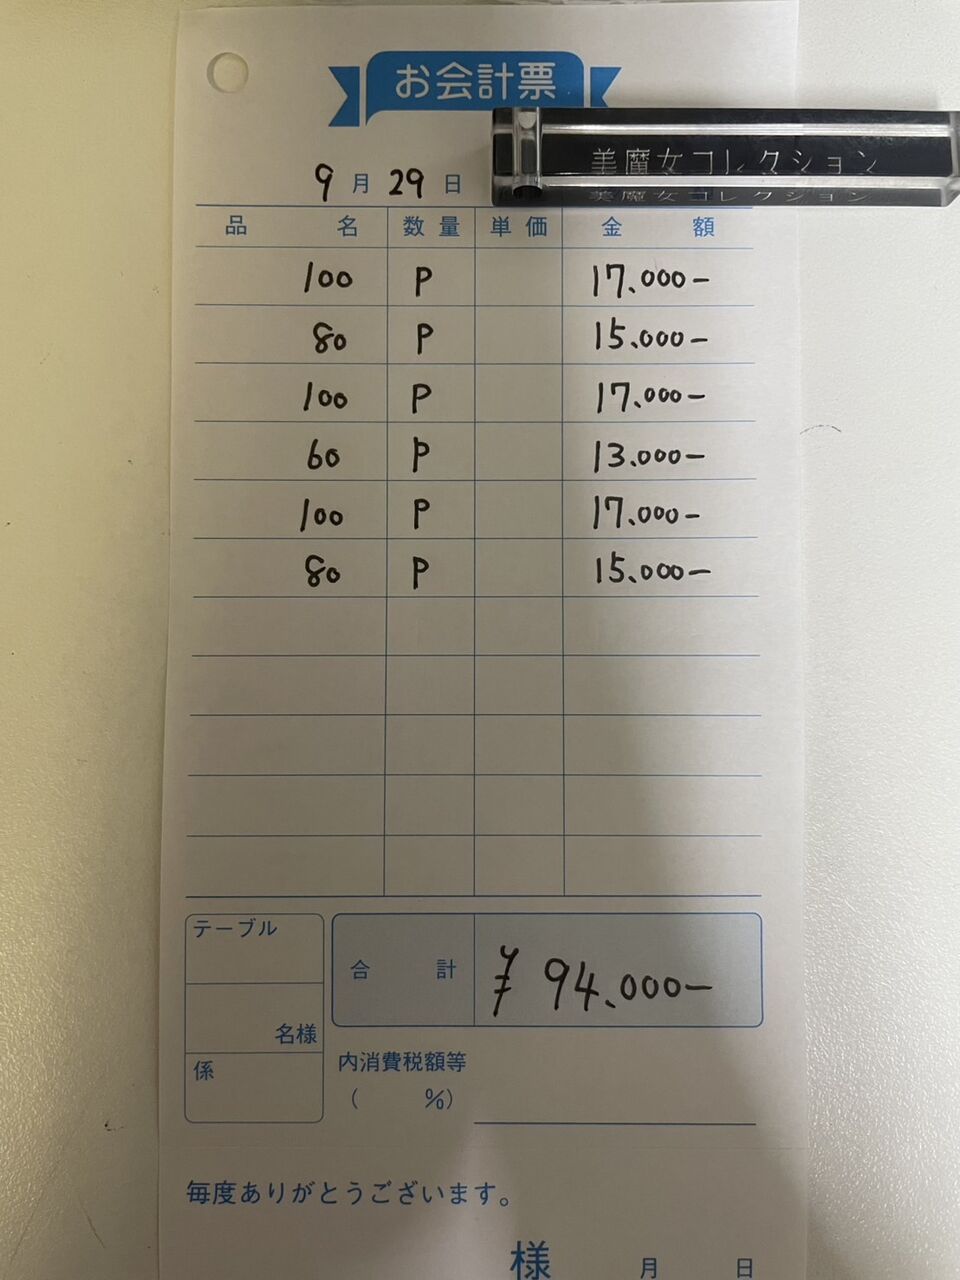 お会計票
美魔女コレクション
美魔女コレクション
9月29日
品名 数量 単価 金額
100 P 17.000-
80 P 15.000-
100 P 17.000-
60 P 13.000-
100 P 17.000-
80 P 15.000-
テーブル
名様
係
合計 ¥94.000-
内消費税額等
( %)
毎度ありがとうございます。
様 月 日